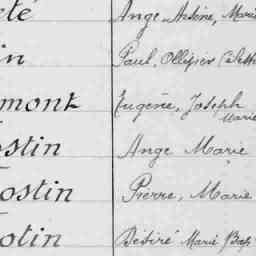 été Ange, Arsène, Marie
in Paul, Ollivier
mont Eugène, Joseph
Marie
ostin Ange Marie
ostin Pierre, Marie
otin Désiré Marie Bap